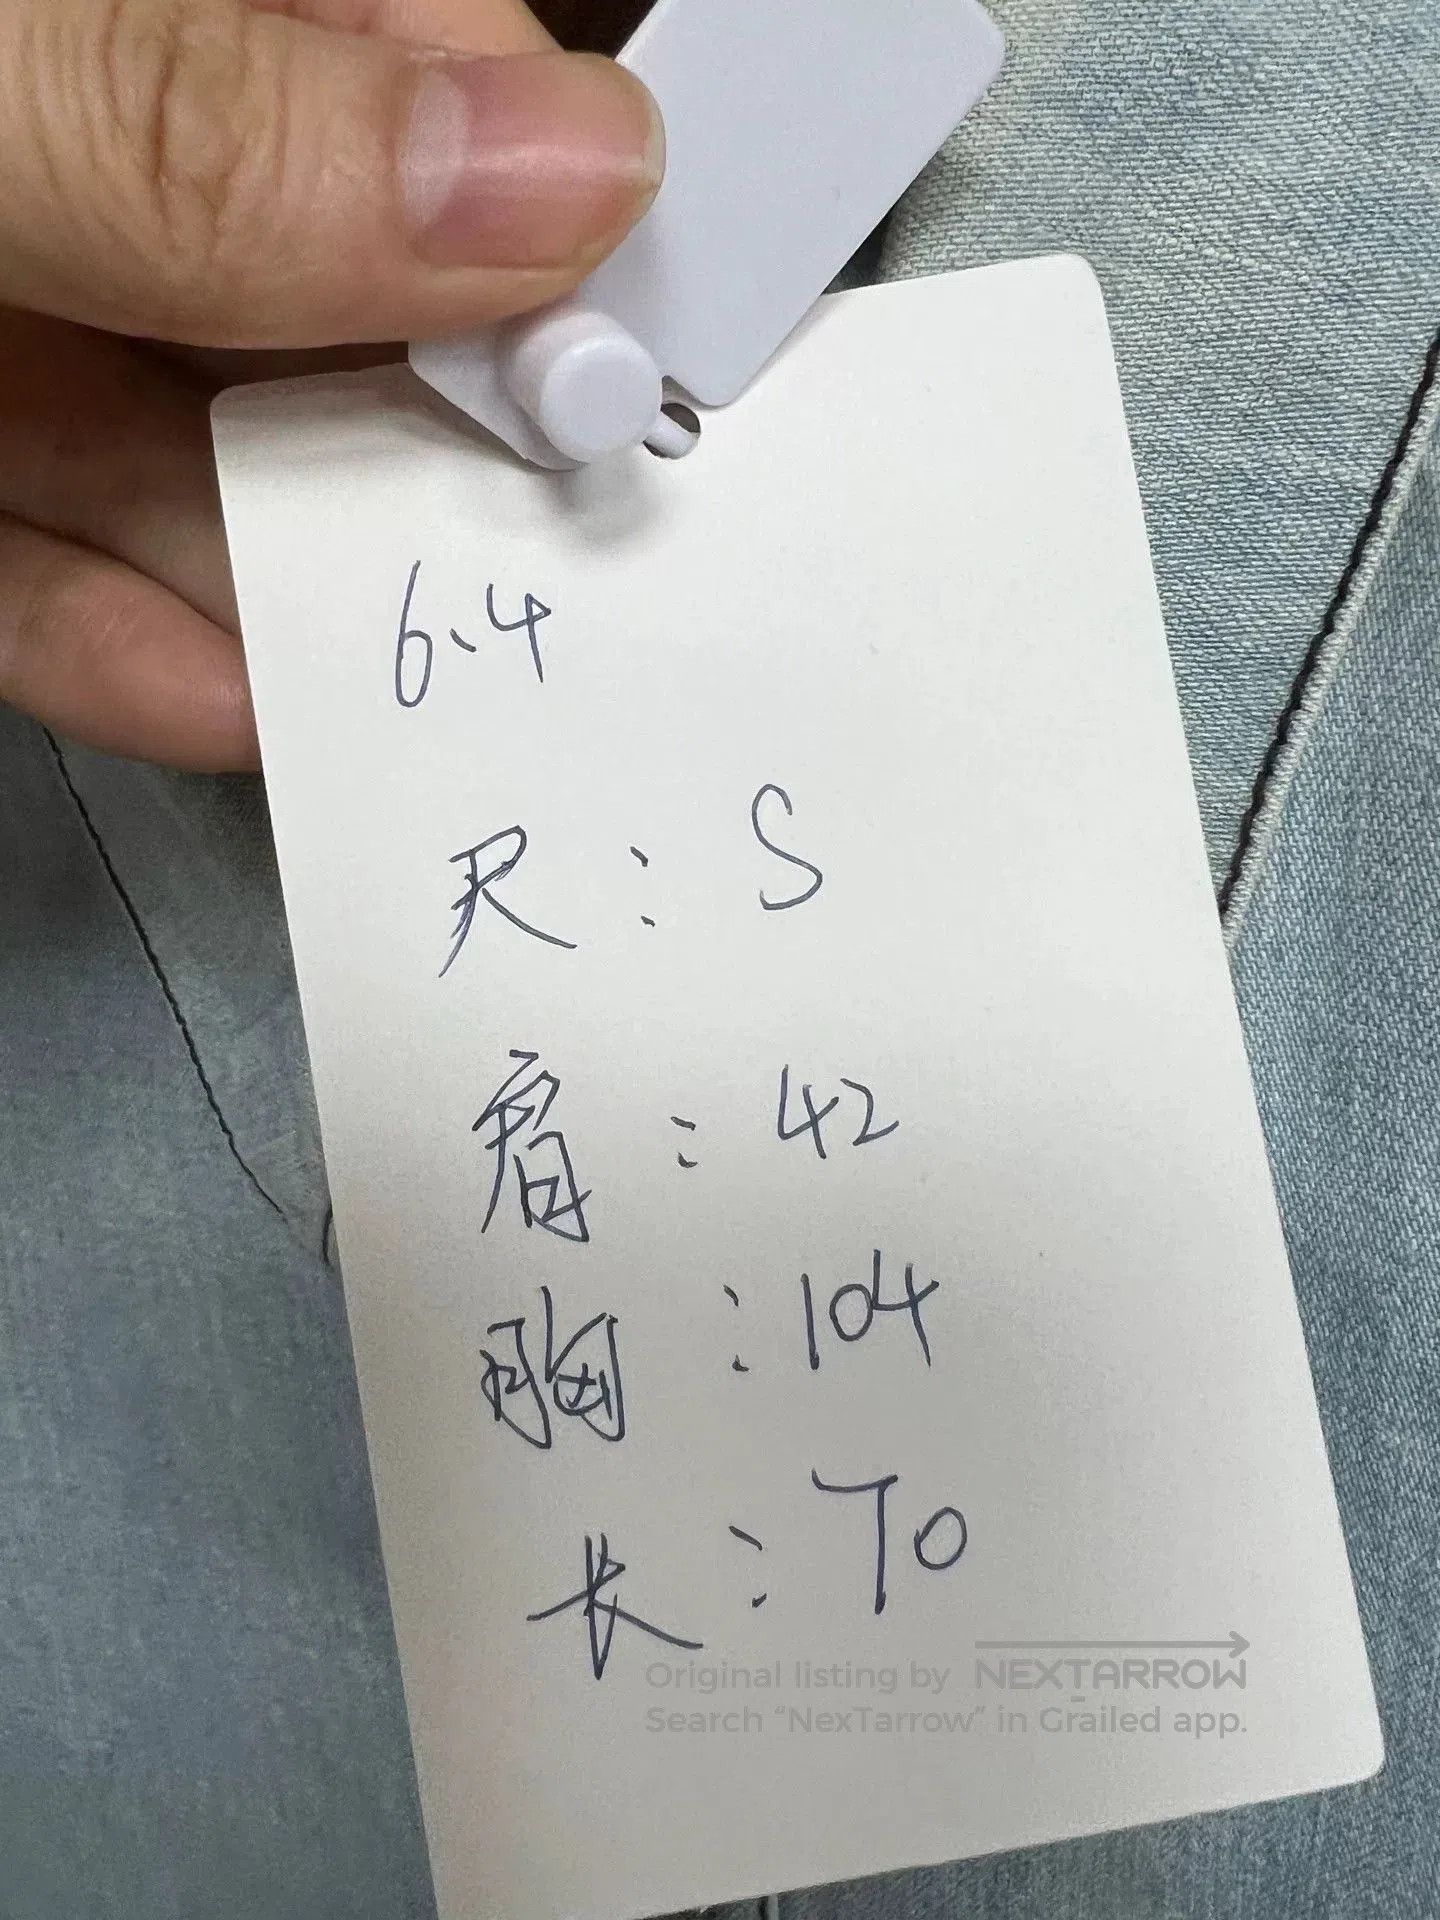 6.4
尺：S
肩：42
胸：104
长：70
Original listing by NEXTARROW
Search “NexTarrow” in Grailed app.